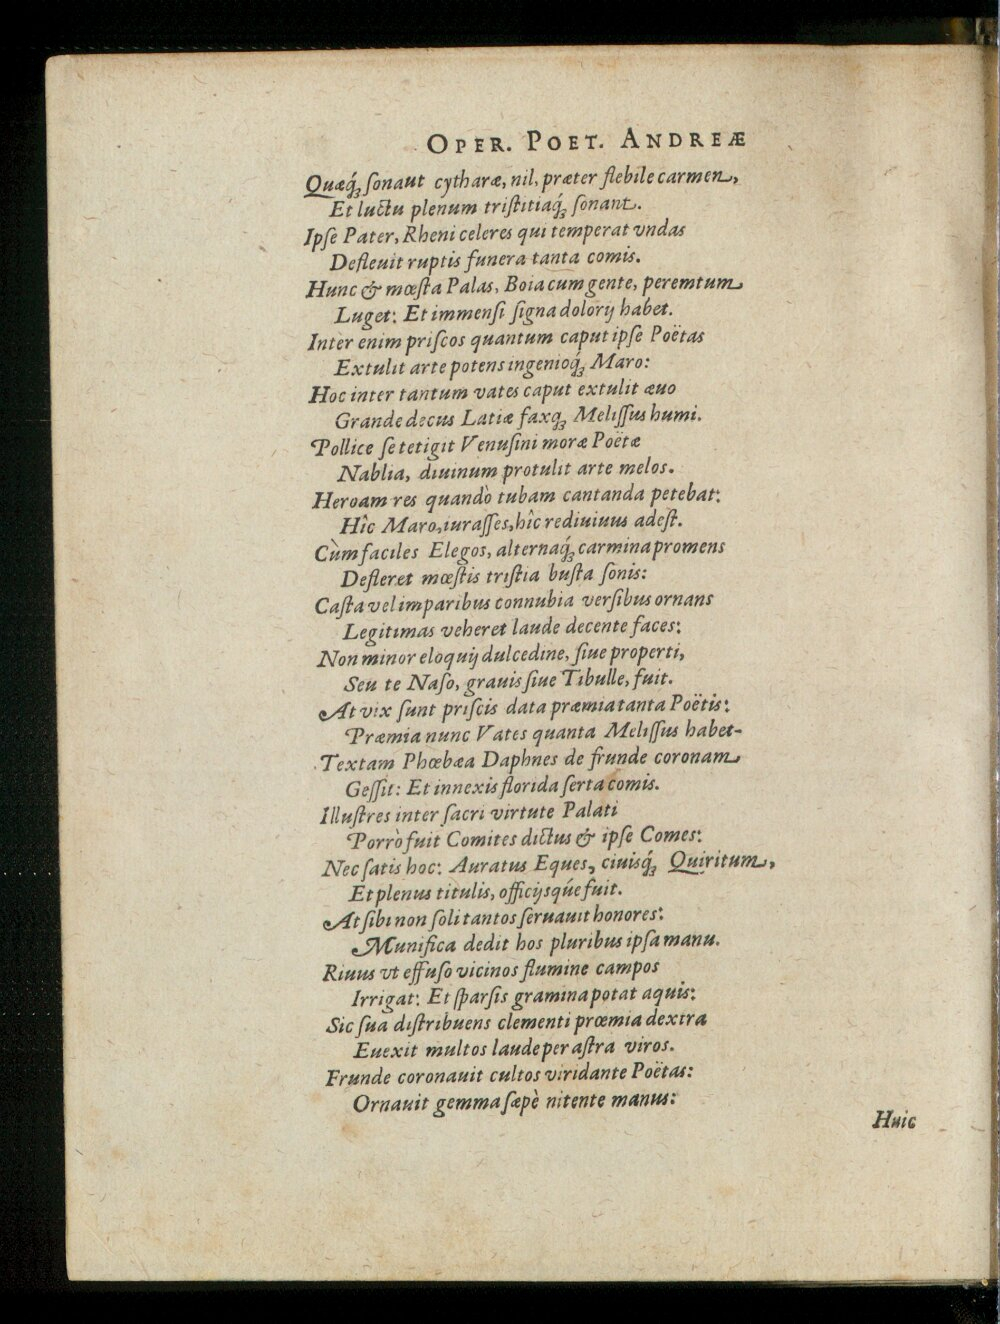 OPER. POET. ANDREÆ
Quæq́ꝫ ſonaut cytharæ, nil, præter flebile carmen,
Et luctu plenum triſtitiaq́ꝫ ſonant.
Ipſe Pater, Rheni celeres qui temperat vndas
Defleuit ruptis funera tanta comis.
Hunc & mœſta Palas, Boia cum gente, peremtum
Luget: Et immenſi ſigna dolorij habet.
Inter enim priſcos quantum caput ipſe Poëtas
Extulit arte potens ingenioq́ꝫ Maro:
Hoc inter tantum vates caput extulit æuo
Grande decus Latiæ faxqꝫ Meliſſus humi.
Pollice ſe tetigit Venuſini moræ Poëtæ
Nablia, diuinum protulit arte melos.
Heroam res quandò tubam cantanda petebat:
Hîc Maro, iuraſſes, hîc rediuiuus adeſt.
Cùm faciles Elegos, alternaq́ꝫ carmina promens
Defleret mœſtis triſtia buſta ſonis:
Caſta vel imparibus connubia verſibus ornans
Legitimas veheret laude decente faces:
Non minor eloquij dulcedine, ſiue properti,
Seu te Naſo, grauis ſiue Tibulle, fuit.
At vix ſunt priſcis data præmia tanta Poëtis:
Præmia nunc Vates quanta Meliſſus habet-
Textam Phœbæa Daphnes de frunde coronam
Geſſit: Et innexis florida ſerta comis.
Illuſtres inter ſacri virtute Palati
Porrò fuit Comites dictus & ipſe Comes:
Nec ſatis hoc: Auratus Eques, ciuisq́ꝫ Quiritum,
Et plenus titulis, officijsqúe fuit.
At ſibi non ſoli tantos ſeruauit honores:
Munifica dedit hos pluribus ipſa manu.
Riuus vt effuſo vicinos flumine campos
Irrigat: Et ſparſis gramina potat aquis:
Sic ſua diſtribuens clementi prœmia dextra
Euexit multos laude per aſtra viros.
Frunde coronauit cultos viridante Poëtas:
Ornauit gemma ſæpè nitente manus:
Huic